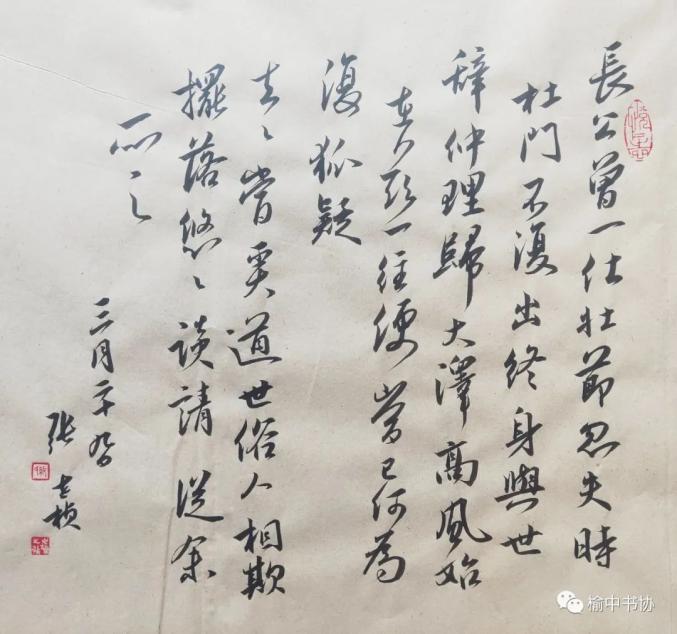 長公曾一仕壯節忽失時
杜門不復出終身與世
辭仲理歸大澤高風始
在茲一往便當已何為
復狐疑
去々當奚道世俗人相欺
擺落悠々談請從余
所之
三月
張
榆中书协